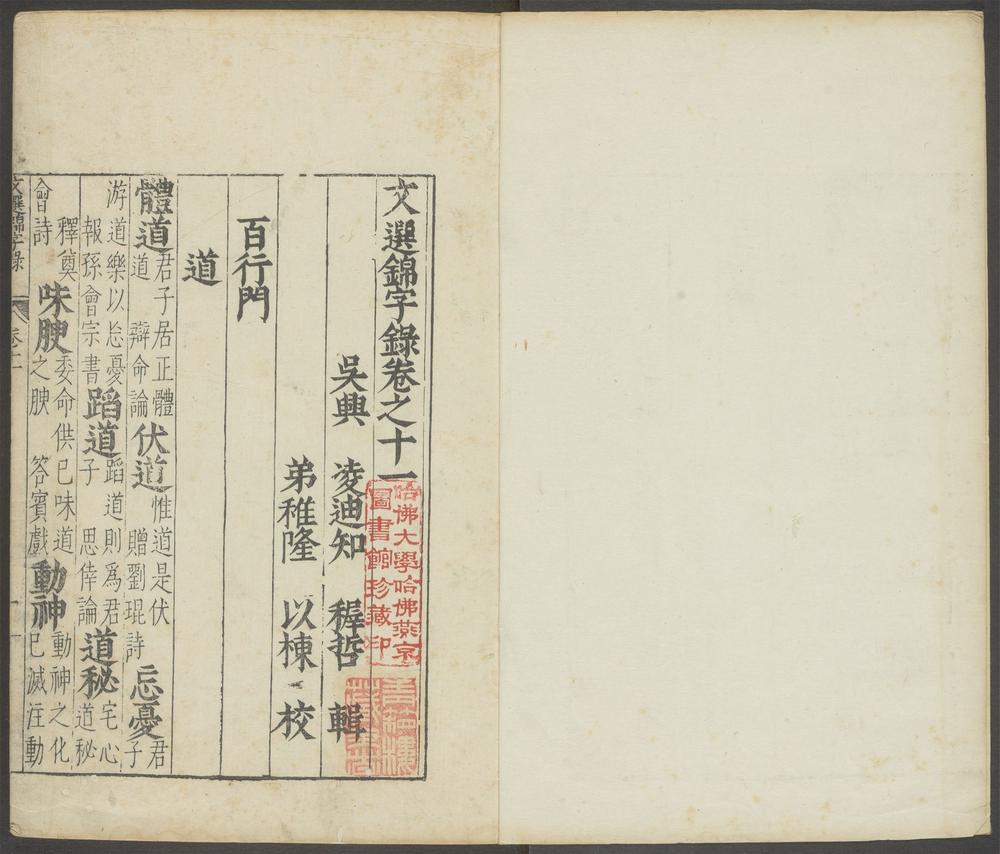 文選錦字錄卷之十一
哈佛大學哈佛燕京
圖書館珍藏印
吳興 凌迪知 穉哲 輯
弟稚隆 以棟 校
百行門
道
體道 君子居正體道 辯命論 伏道 惟道是伏 贈劉琨詩 忘憂 君子
游道樂以忘憂 報孫會宗書 蹈道 蹈道則爲君子 思倖論 道秘 宅心道秘
釋奠會詩 味腴 委命供巳味道之腴 答賓戲 動神 動神之化巳滅注動
文選錦字錄 卷十一